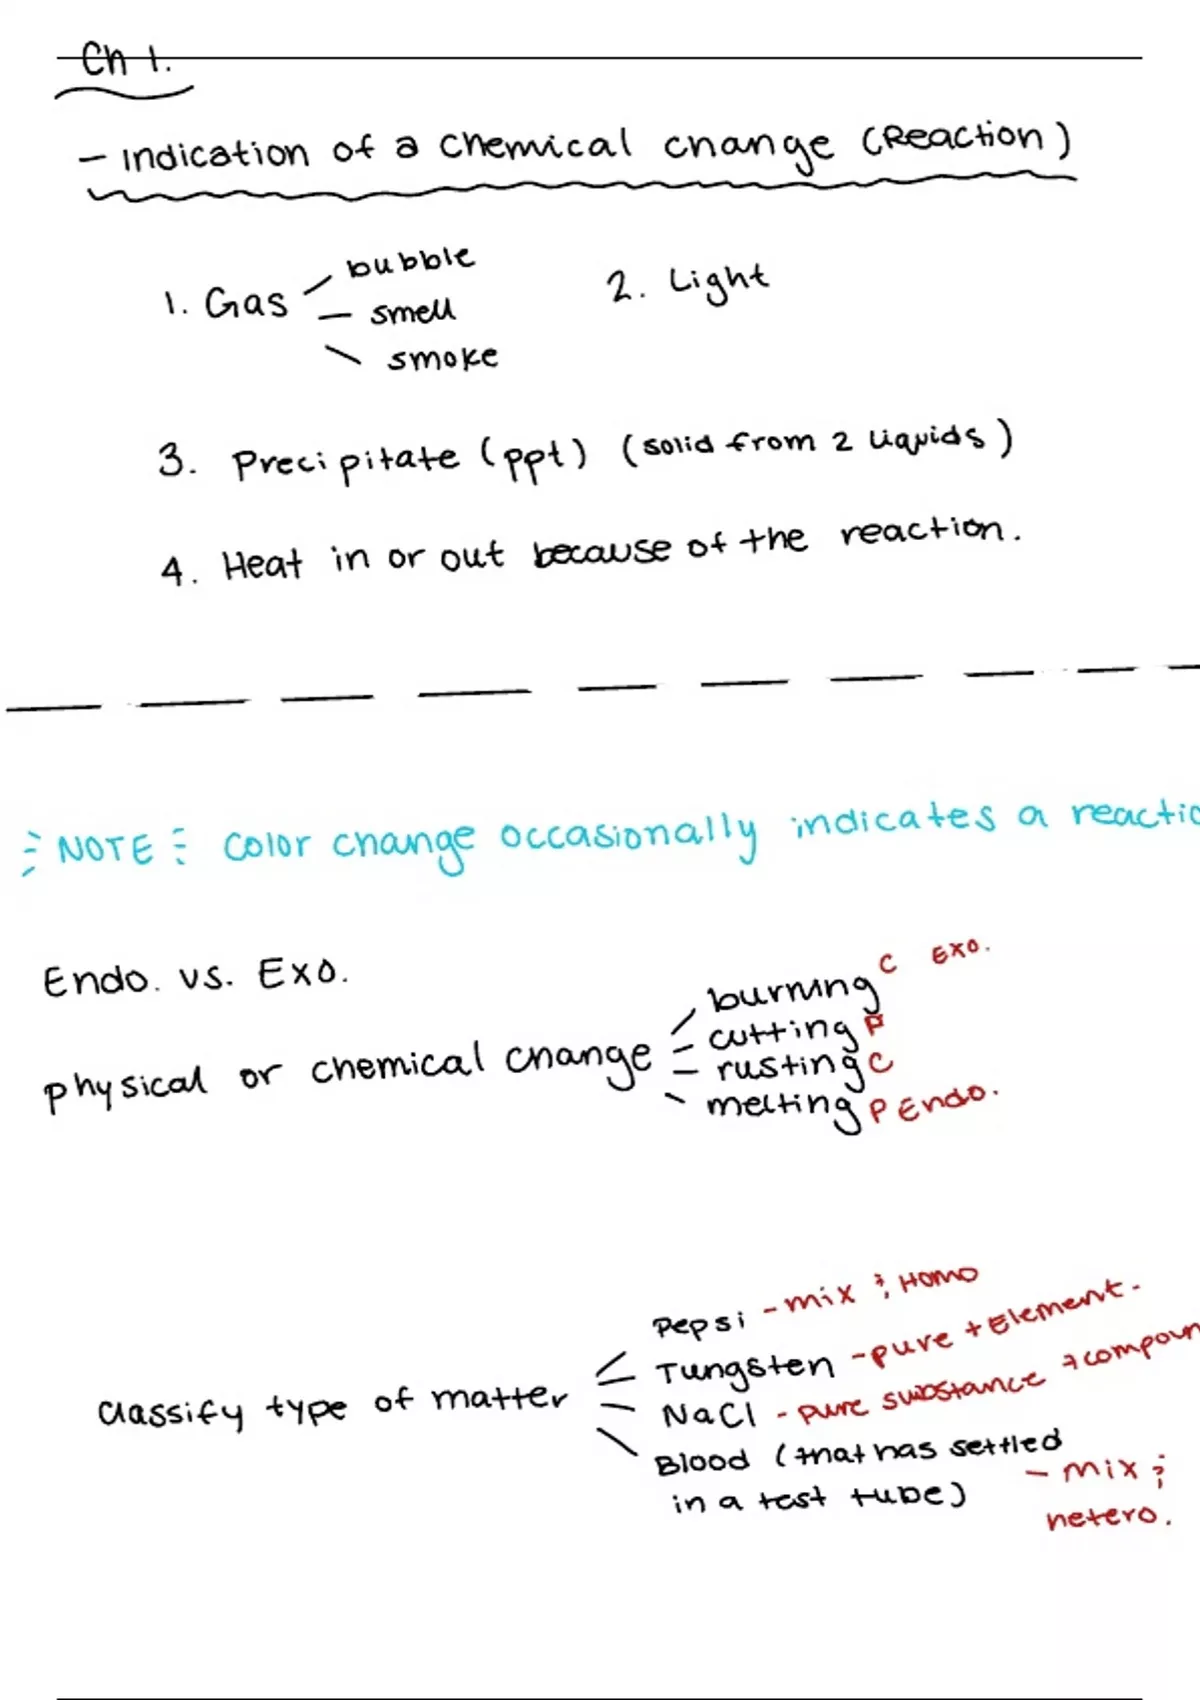 Ch 1.
- Indication of a chemical change (Reaction)
1. Gas - bubble
- smell
- smoke
2. Light
3. Precipitate (ppt) (solid from 2 liquids)
4. Heat in or out because of the reaction.
NOTE: Color change occasionally indicates a reactio
Endo. vs. Exo.
physical or chemical change - burning C Exo.
- cutting P
- rusting C
- melting P Endo.
Classify type of matter - Pepsi - mix & Homo
- Tungsten - pure + Element.
- NaCl - pure substance + compoun
Blood (that has settled
in a test tube) - mix &
hetero.